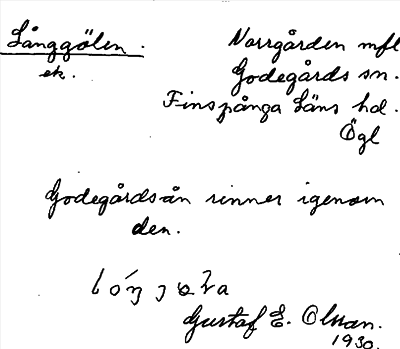 Långgölen. Norrgården mfl
ek. Godegårds sn.
Finspånga Läns hd.
Ögl
Godegårds-ån rinner igenom
den.
Gustaf E. Olsson.
1930.